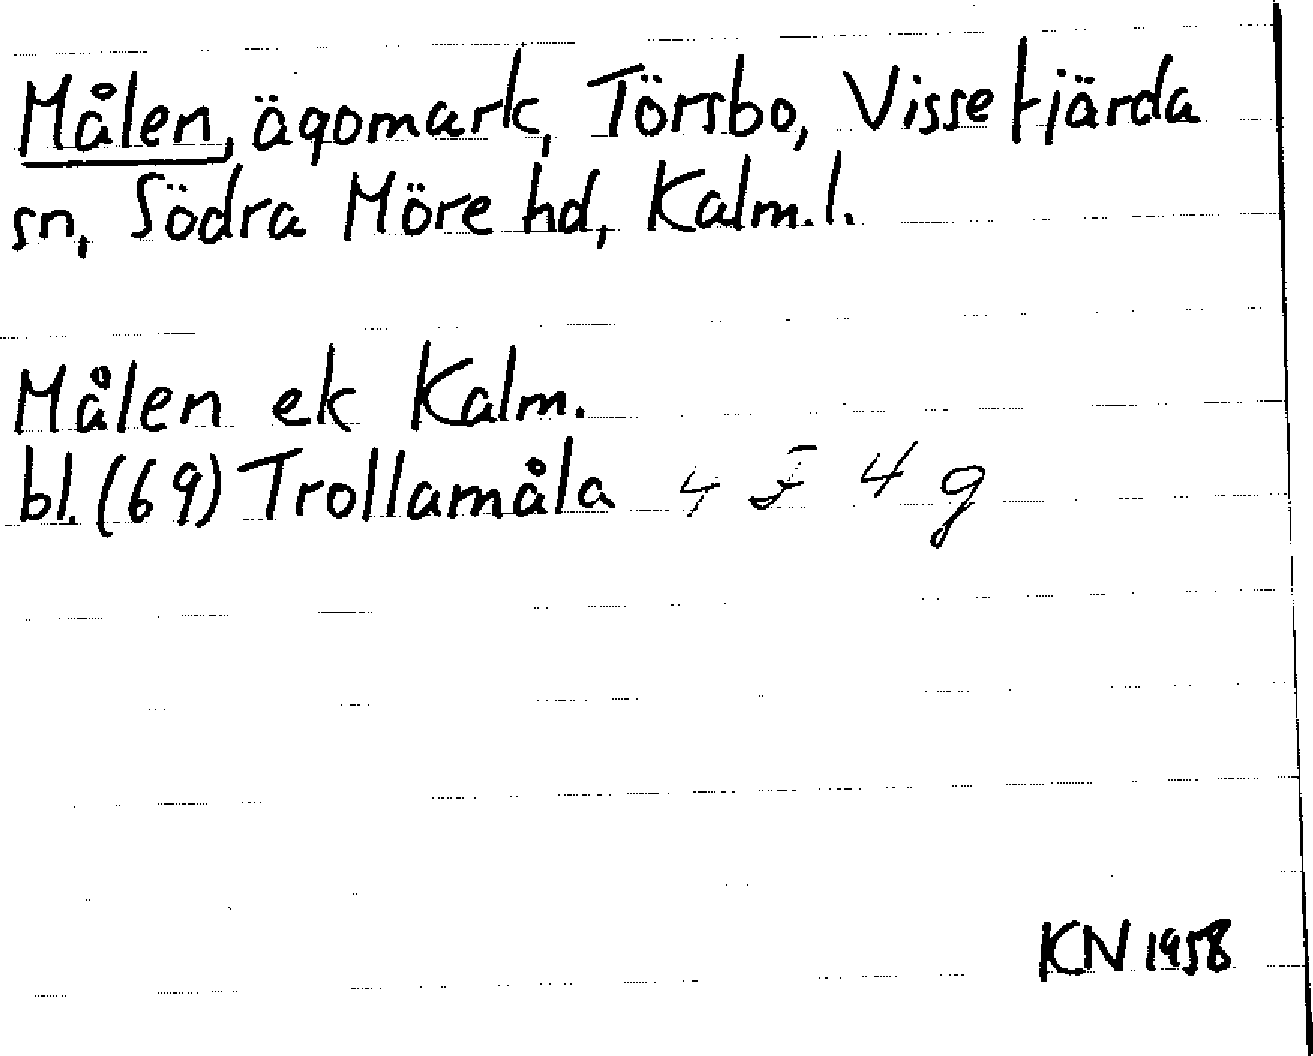 Målen, ägomark, Törsbo, Vissefjärda
sn, Södra Möre hd, Kalm.l.
Målen ek Kalm.
bl. (69) Trollamåla 4 F 4 g
KN 1958